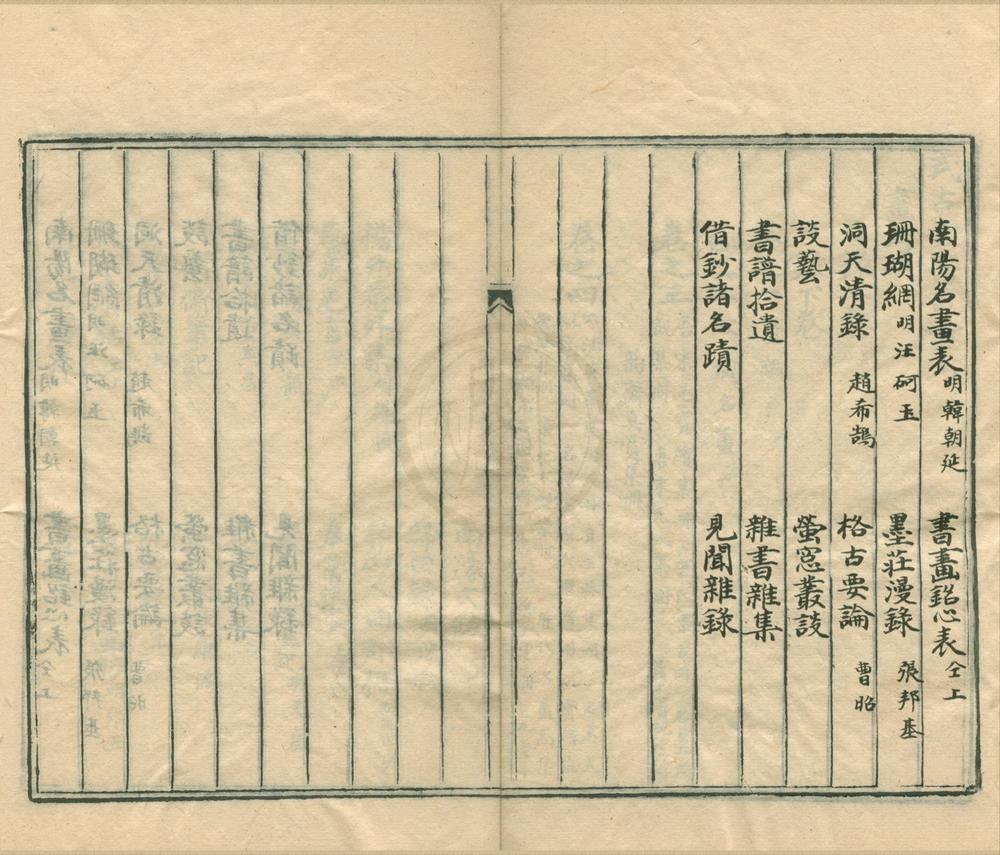 南陽名畫表明韓朝延　書畫銘心表仝上
珊瑚網明汪砢玉　墨莊漫錄張邦基
洞天清錄趙希鵠　格古要論曹昭
談藝　螢窓叢談
書譜拾遺　雜書雜集
借鈔諸名蹟　見聞雜錄